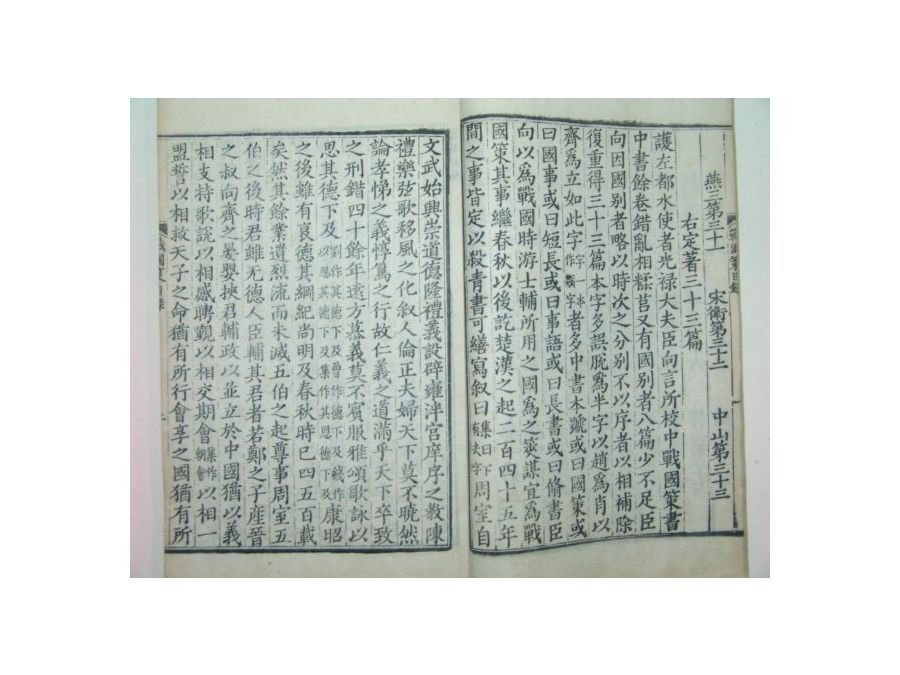 燕三第三十一　宋衛第三十二　中山第三十三
右定著三十三篇
護左都水使者光禄大夫臣向言所校中戰國策書
中書餘卷錯亂相糅莒又有國別者八篇少不足臣
向因國别者略以時次之分别不以序者以相補除
復重得三十三篇本字多誤脱爲半字以趙爲肖以
齊爲立如此字一本作類字者多中書本號或曰國策或
曰國事或曰短長或曰事語或曰長書或曰脩書臣
向以爲戰國時游士輔所用之國爲之筞謀宜爲戰
國策其事繼春秋以後訖楚漢之起二百四十五年
間之事皆定以殺青書可繕寫叙曰集曰下有夫字周室自
文武始興崇道德隆禮義設辟雍泮宫庠序之教陳
禮樂弦歌移風之化叙人倫正夫婦天下莫不曉然
論孝悌之義惇篤之行故仁義之道滿乎天下卒致
之刑錯四十餘年遠方慕義莫不賓服雅頌歌詠以
思其德下及劉作其德下及曾作德下及錢作以思其德下及集作其恩德下及康昭
之後雖有衰德其綱紀尚明及春秋時已四五百載
矣然其餘業遺烈流而未滅五伯之起尊事周室五
伯之後時君雖无德人臣輔其君者若鄭之子産晉
之叔向齊之晏嬰挾君輔政以並立於中國猶以義
相支持歌說以相感聘覲以相交期會集作朝會以相一
盟誓以相救天子之命猶有所行會享之國猶有所